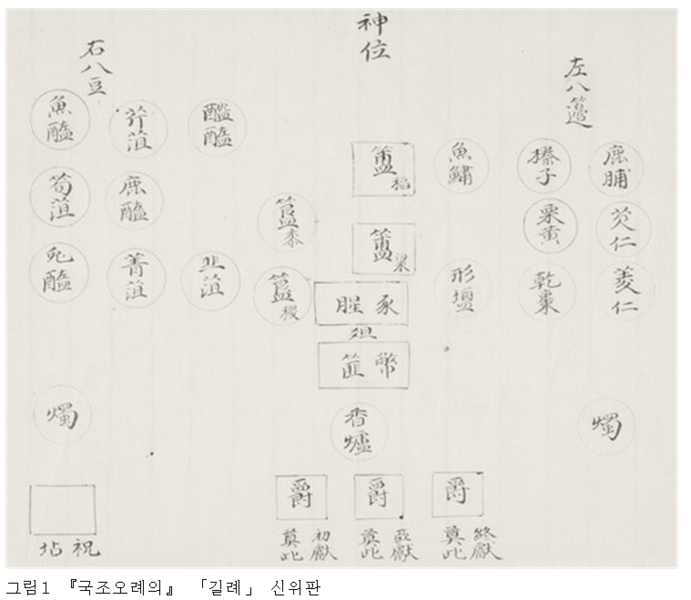 神位
右八豆
左八籩
魚醢
芹菹
醓醢
簠稻
魚鱐
榛子
鹿脯
筍菹
鹿醢
簋黍
簠粱
栗黃
芡仁
兎醢
菁菹
韭菹
簋稷
形塩
乾棗
菱仁
豕腥
俎
幣篚
燭
香爐
燭
爵
爵
爵
祝坫
初獻奠此
亞獻奠此
終獻奠此
그림1 『국조오례의』 「길례」 신위판